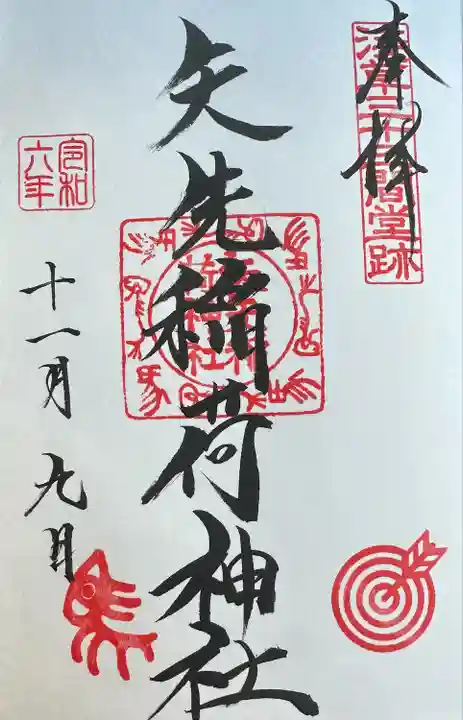 奉拝
浅草三十三間堂跡
矢先稲荷神社
令和
六年
十一月九日